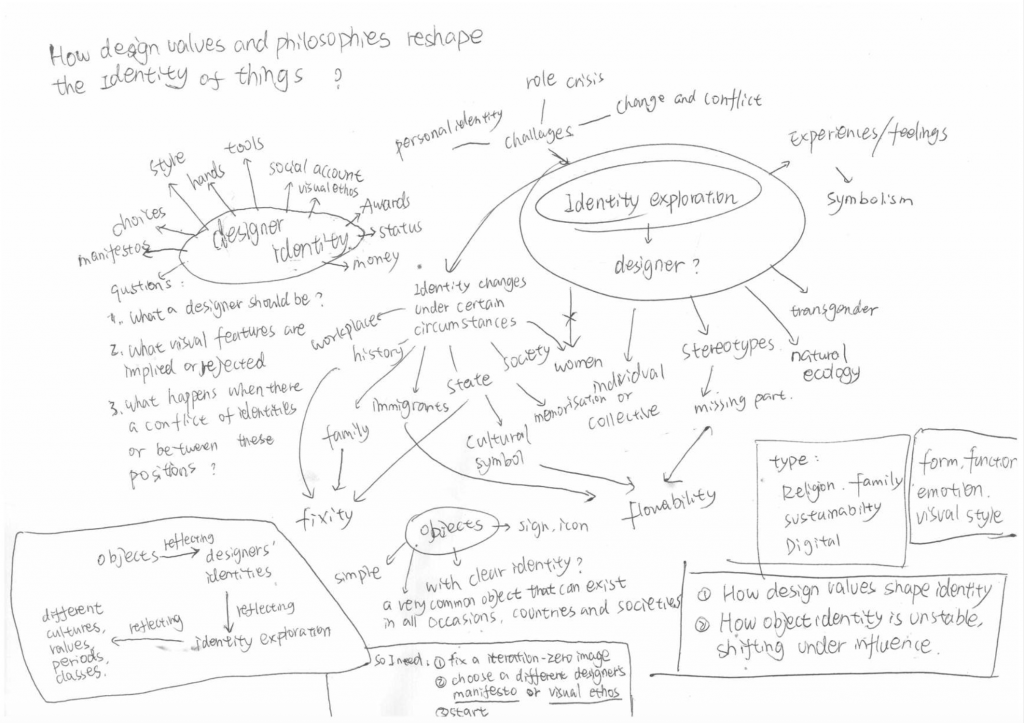 How design values and philosophies reshape
the Identity of things ?
role crisis
personal identity
challages
change and conflict
Experiences/feelings
symbolism
Identity exploration
designer ?
style
hands
tools
social account
visual ethos
Awards
status
money
choices
manifestos
designer
identity
qustions :
1. what a designer should be ?
2. what visual features are
implied or rejected
3. what happens when there
a conflict of identities
or between these
positions ?
Identity changes
under certain
circumstances
workplace
history
family
immigrants
state
society
cultural
symbol
memorisation
women
individual
or
collective
stereotypes
missing part.
natural
ecology
transgender
fixity
flowability
objects
sign, icon
simple
with clear identity ?
a very common object that can exist
in all occasions, countries and societies
type :
Religion. family
sustainabilty
Digital
form, function
emotion.
visual style
① How design values shape identity
② How object identity is unstable,
shifting under influence.
objects
reflecting
designers'
identities
reflecting
identity exploration
reflecting
different
cultures,
values,
periods,
classes.
So I need : ① fix a iteration-zero image
② choose a different designers
manifesto or visual ethos
③ start